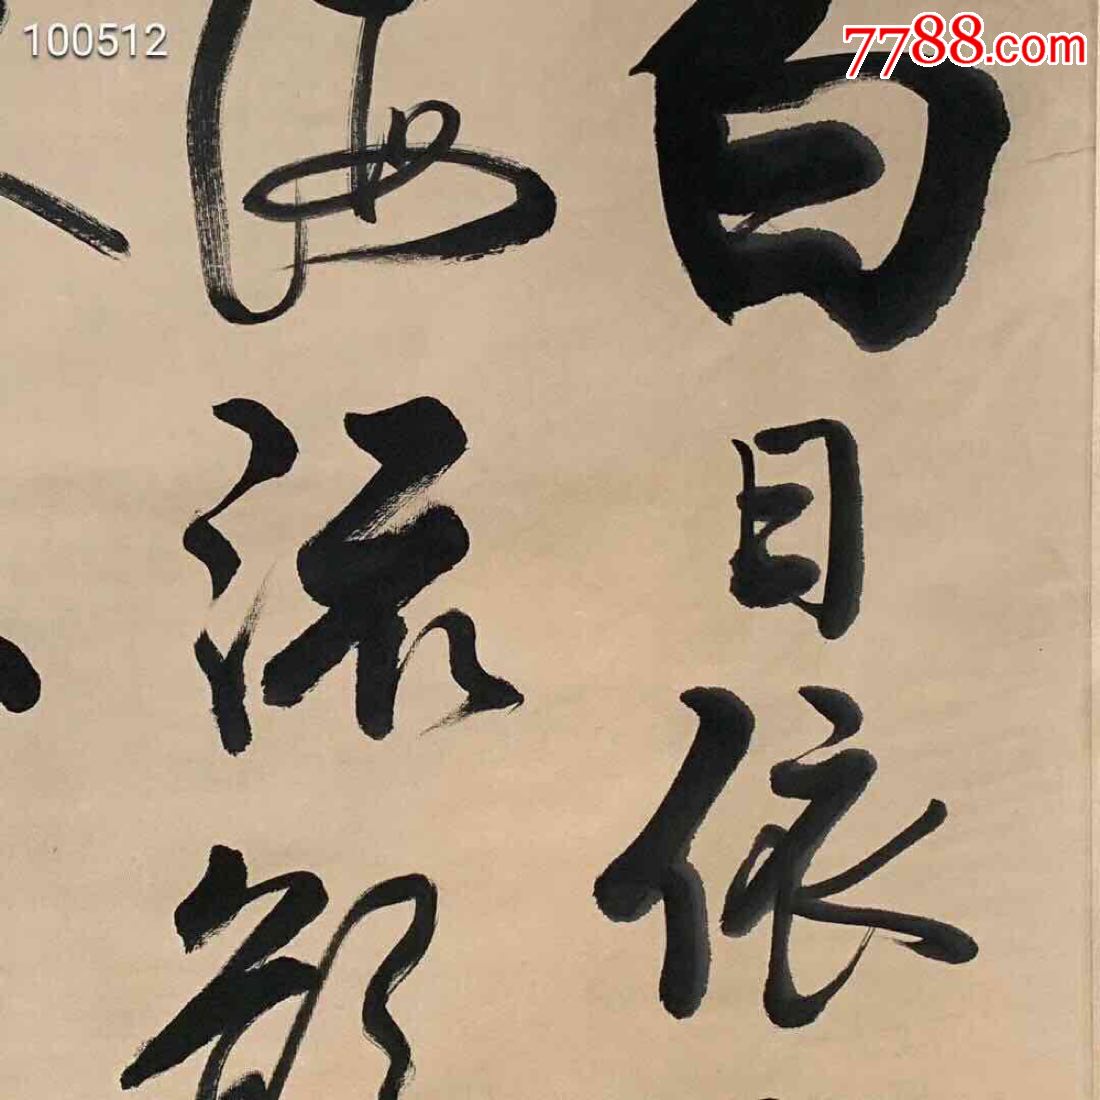 100512
7788.com
白日依
海流欲